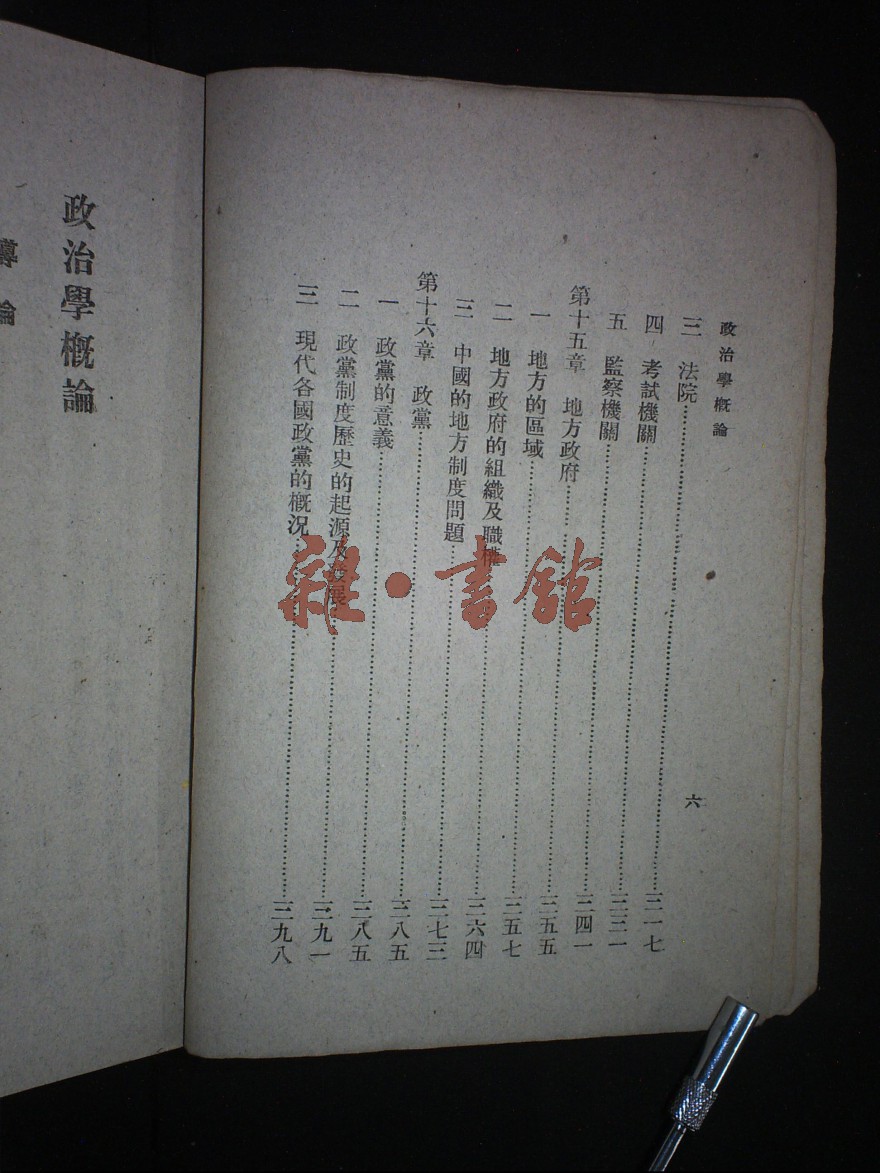 政治學概論
六
三 法院……三一七
四 考試機關……三三一
五 監察機關……三四一
第十五章 地方政府……三五五
一 地方的區域……三五七
二 地方政府的組織及職權……三六四
三 中國的地方制度問題……三七三
第十六章 政黨……三八五
一 政黨的意義……三八五
二 政黨制度歷史的起源及發展……三九一
三 現代各國政黨的概況……三九八
政治學概論
導論
雜·書館